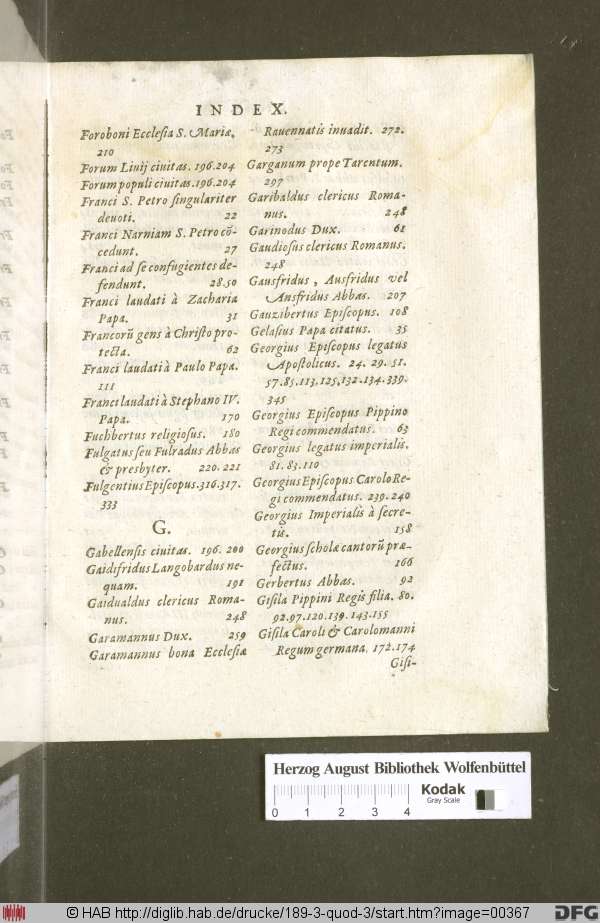 INDEX.
Foroboni Ecclesia S. Mariæ,
210
Forum Livij ciuitas. 196.204
Forum populi ciuitas. 196.204
Franci S. Petro singulariter
deuoti. 22
Franci Narniam S. Petro cō-
cedunt. 27
Franci ad se confugientes de-
fendunt. 28.50
Franci laudati à Zacharia
Papa. 31
Francorū gens à Christo pro-
tecta. 62
Franci laudati à Paulo Papa.
111
Franci laudati à Stephano IV.
Papa. 170
Fuchbertus religiosus. 180
Fulgatus seu Fulradus Abbas
& presbyter. 220.221
Fulgentius Episcopus. 316.317.
333
G.
Gabellensis ciuitas. 196. 200
Gaidifridus Langobardus ne-
quam. 191
Gaidualdus clericus Roma-
nus. 248
Garamannus Dux. 259
Garamannus bona Ecclesiæ
Rauennatis inuadit. 272.
273
Garganum prope Tarentum.
297
Garibaldus clericus Roma-
nus. 248
Garinodus Dux. 61
Gaudiosus clericus Romanus.
248
Gausfridus, Ausfridus vel
Ansfridus Abbas. 207
Gauzibertus Episcopus. 108
Gelasius Papa citatus. 35
Georgius Episcopus legatus
Apostolicus. 24. 29. 51.
57.85.113.125.132.134.339.
345
Georgius Episcopus Pippino
Regi commendatus. 63
Georgius legatus imperialis.
81.83.110
Georgius Episcopus Carolo Re-
gi commendatus. 239.240
Georgius Imperialis à secre-
tis. 158
Georgius scholæ cantorū præ-
fectus. 166
Gerbertus Abbas. 92
Gisila Pippini Regis filia. 80.
92.97.120.139.143.155
Gisila Caroli & Carolomanni
Regum germana. 172.174
Gisi-
Herzog August Bibliothek Wolfenbüttel
Kodak
Gray Scale
0 1 2 3 4
© HAB http://diglib.hab.de/drucke/189-3-quod-3/start.htm?image=00367
DFG